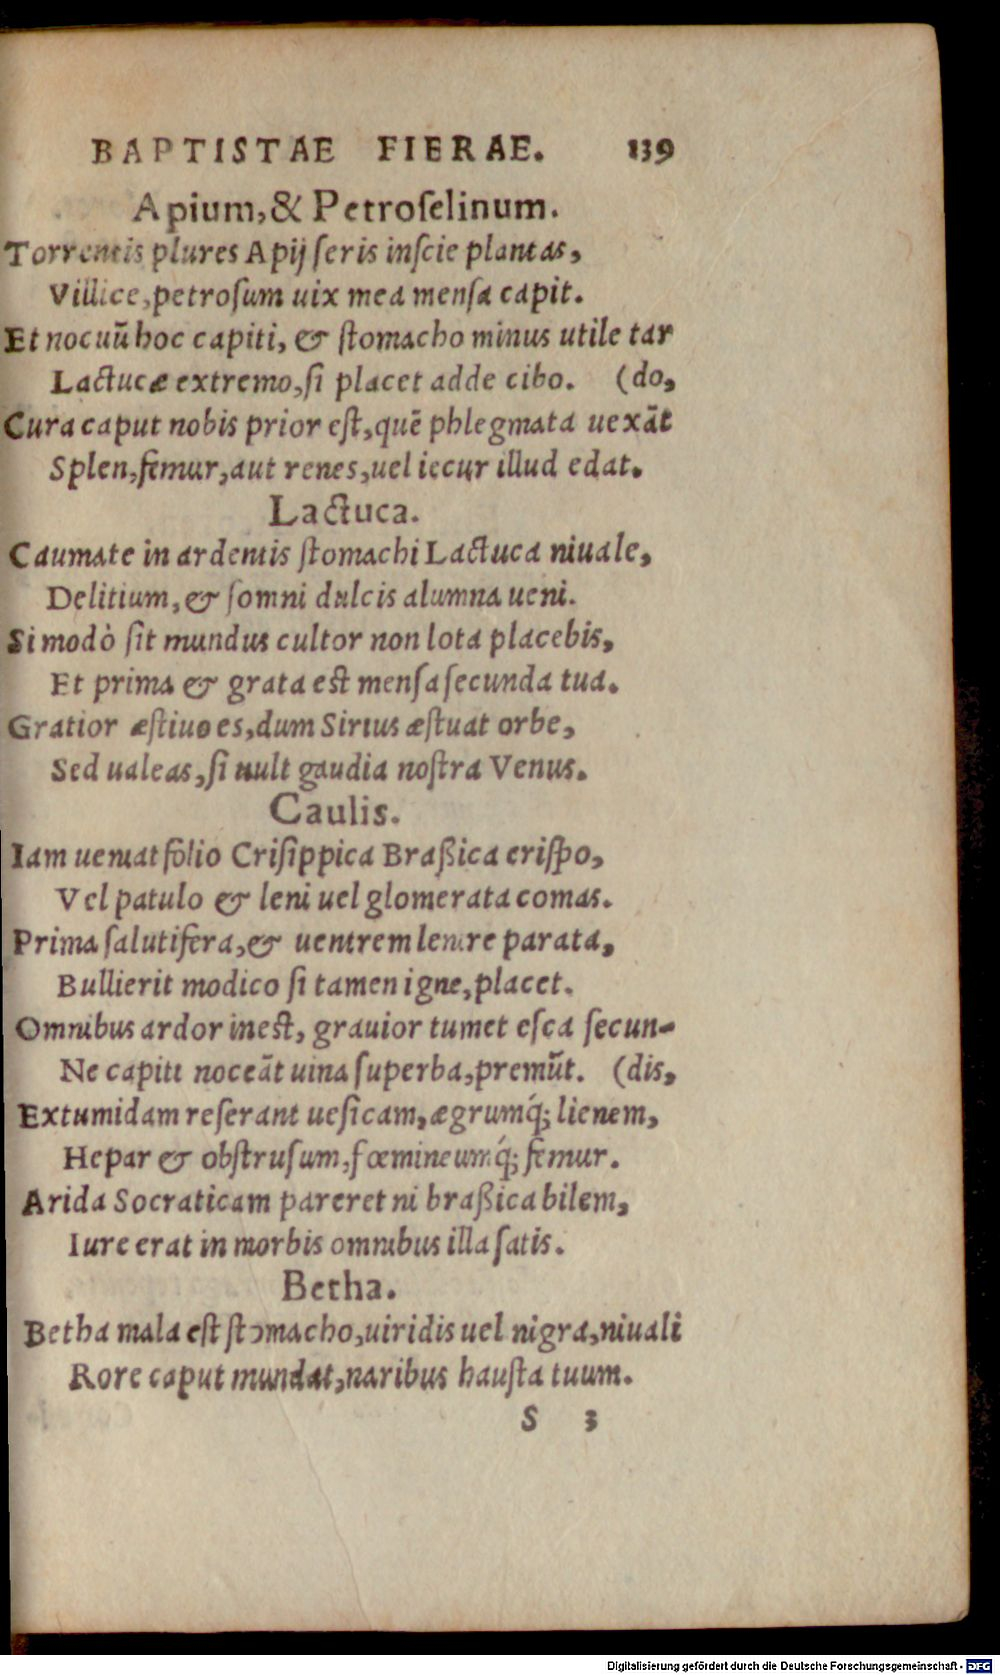 BAPTISTAE FIERAE. 139
Apium, & Petroſelinum.
Torrentis plures Apij ſeris inſcie plantas,
Villice, petroſum uix mea menſa capit.
Et nocuũ hoc capiti, & ſtomacho minus utile tar
Lactucæ extremo, ſi placet adde cibo. (do,
Cura caput nobis prior eſt, quẽ phlegmata uexãt
Splen, femur, aut renes, uel iecur illud edat.
Lactuca.
Caumate in ardentis ſtomachi Lactuca niuale,
Delitium, & ſomni dulcis alumna ueni.
Si modò ſit mundus cultor non lota placebis,
Et prima & grata est menſa ſecunda tua.
Gratior æſtiuo es, dum Sirius æſtuat orbe,
Sed ualeas, ſi uult gaudia noſtra Venus.
Caulis.
Iam ueniat folio Criſippica Braßica criſpo,
Vel patulo & leni uel glomerata comas.
Prima ſalutifera, & uentrem lenire parata,
Bullierit modico ſi tamen igne, placet.
Omnibus ardor inest, grauior tumet eſca ſecun-
Ne capiti noceãt uina ſuperba, premũt. (dis,
Extumidam reſerant ueſicam, ægrumq́; lienem,
Hepar & obſtruſum, fœmineumq́; femur.
Arida Socraticam pareret ni braßica bilem,
Iure erat in morbis omnibus illa ſatis.
Betha.
Betha mala eſt ſtomacho, uiridis uel nigra, niuali
Rore caput mundat, naribus hauſta tuum.
S 3
Digitalisierung gefördert durch die Deutsche Forschungsgemeinschaft - DFG